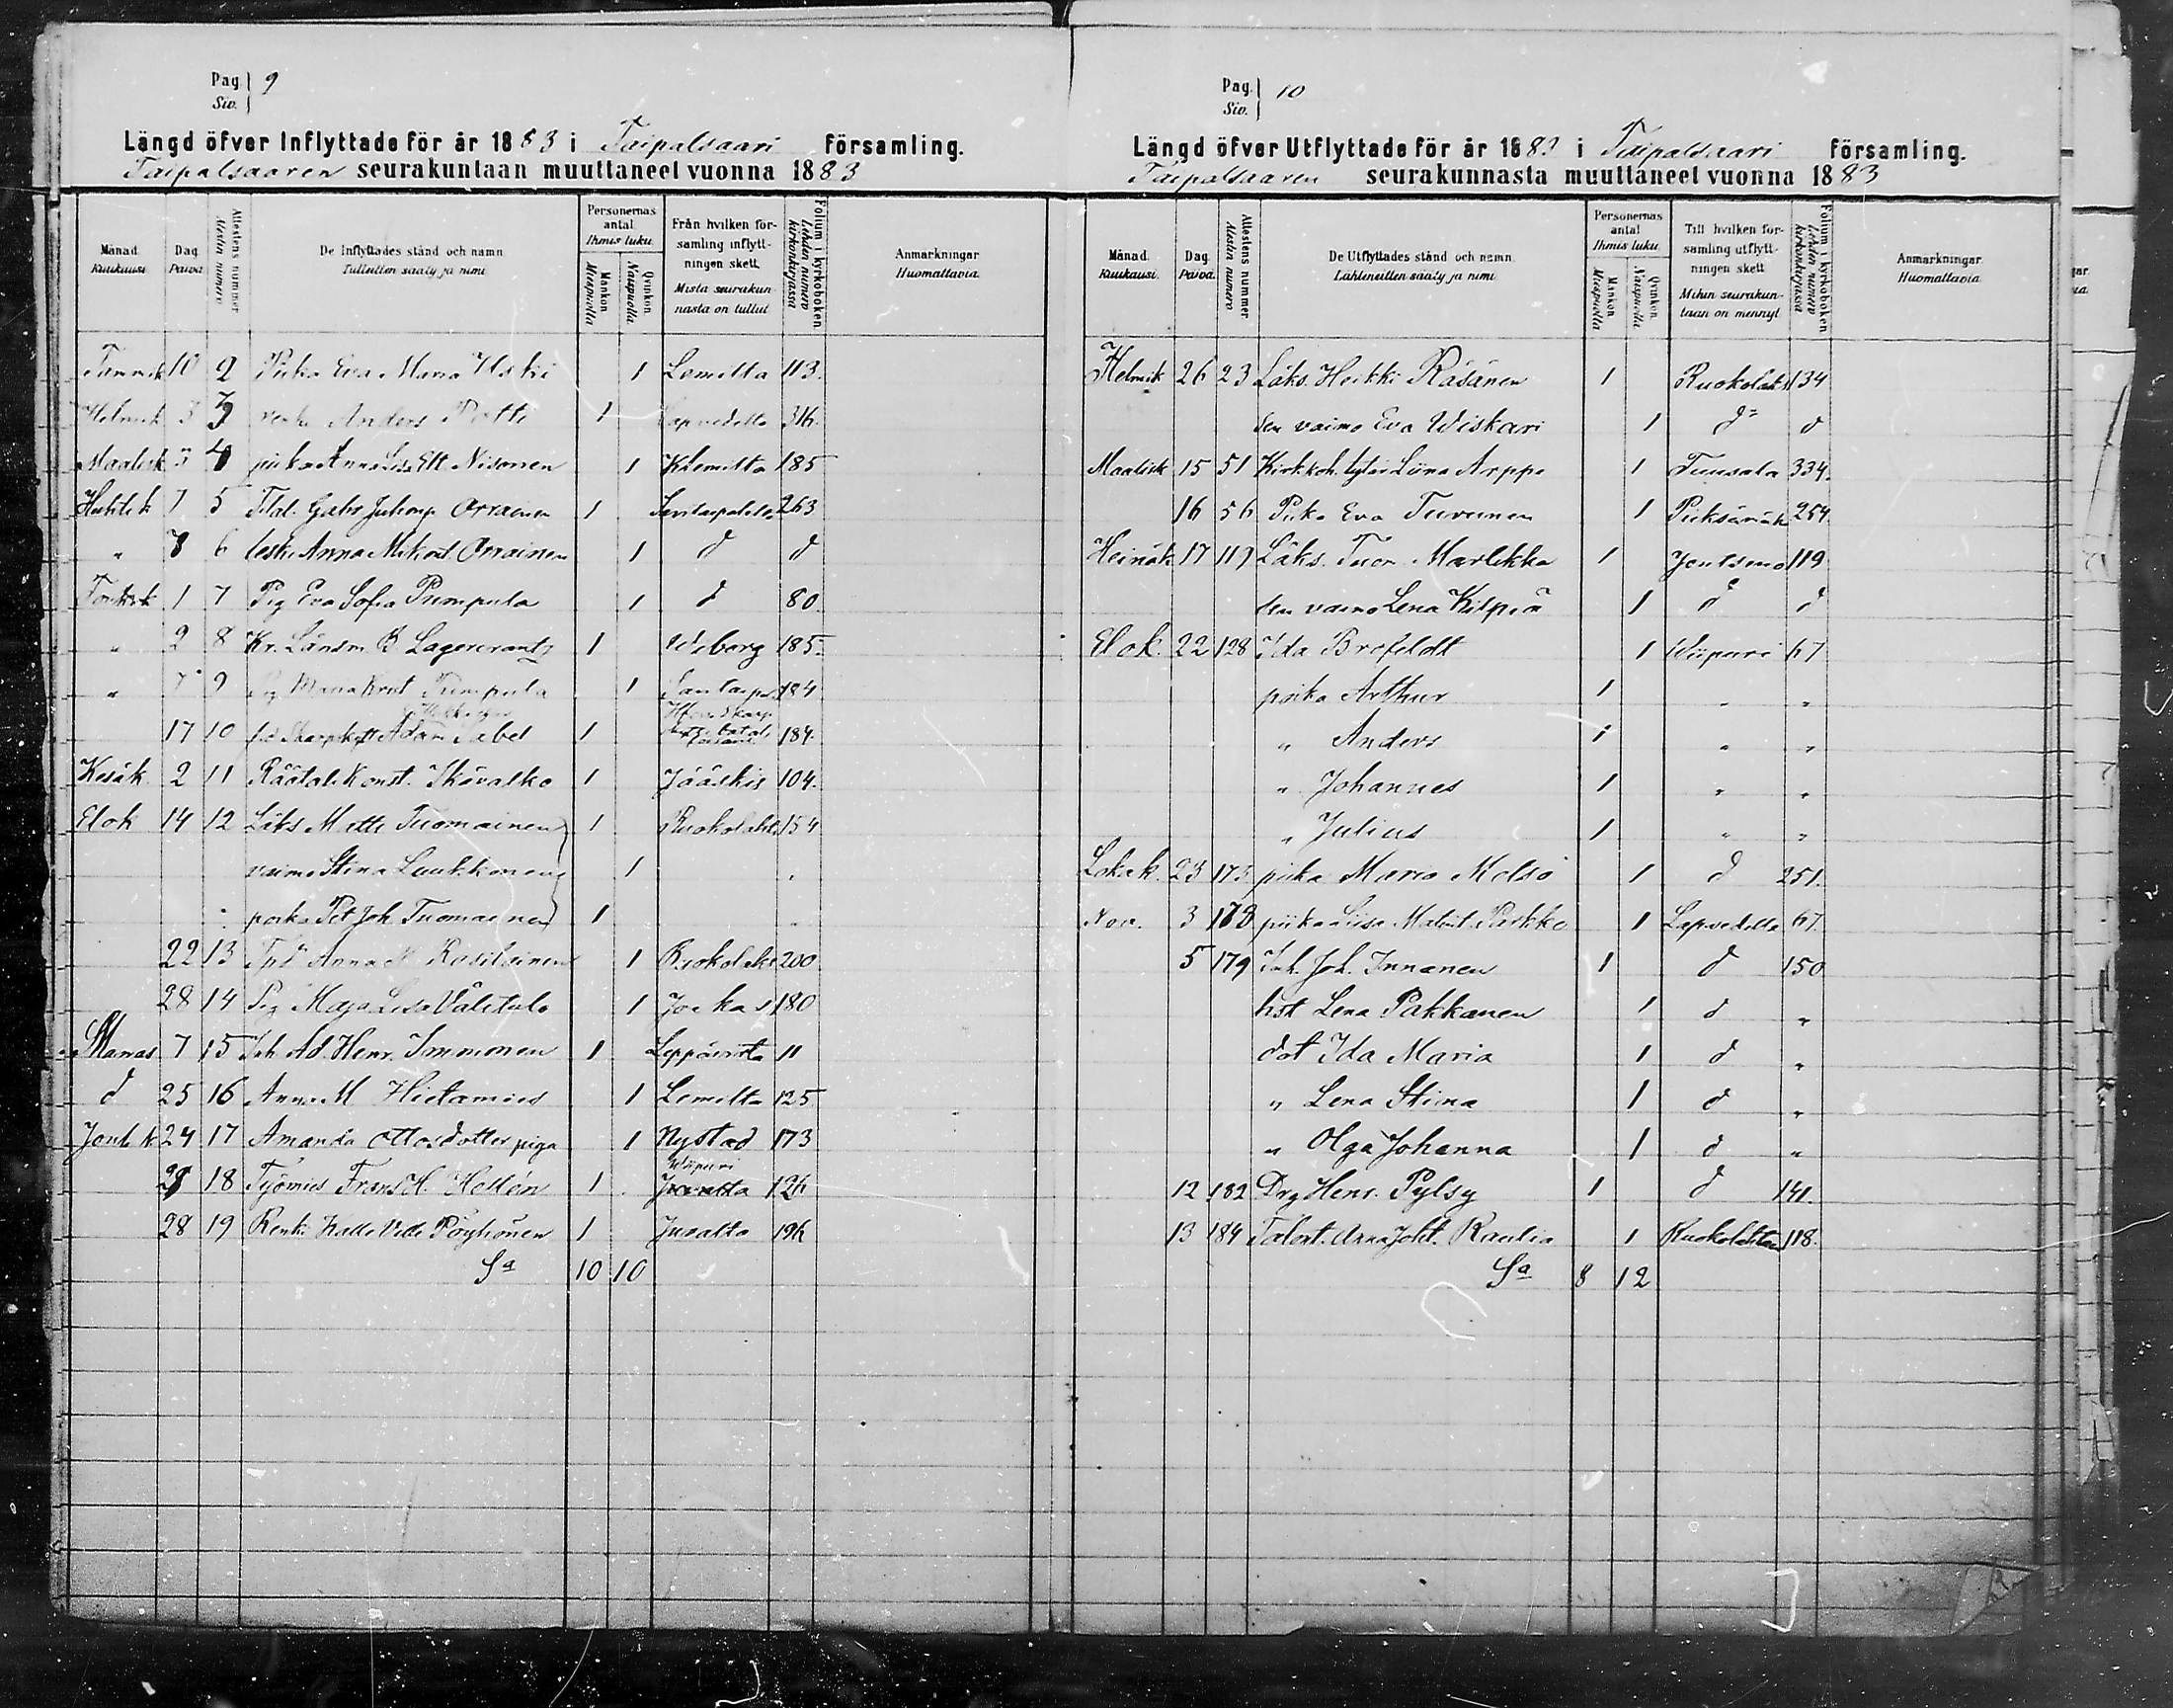 Pag. 9
Siv.
Längd öfver Inflyttade för år 1883 i Taipalsaari församling.
Taipalsaaren seurakuntaan muuttaneet vuonna 1883
Månad. Kuukausi.
Dag. Päivä.
Attestens nummer Alestin numero
De Inflyttades stånd och namn
Tulleitten sääty ja nimi
Personernas antal Ihmis luku.
Mankön Miespuolia
Qvinkön Naispuolia
Från hvilken församling inflyttningen skett.
Mistä seurakunnasta on tullut
Folium i kyrkoboken Lehden numero kirkonkirjassa
Anmärkningar
Huomattavia.
Tammik 10 2 Piika Eva Maria Uski 1 Lemilta 113.
Helmik 3 3 renki Anders Potti 1 Lapvedeltä 316.
Maalisk 3 4 piika Anna Lisa Elt Nisonen 1 Klemilta 185
Huhtik 7 5 Tilal. Gabr Juhonp Orrainen 1 Savitaipaleelta 263
" 7 6 leski Anna Mikont. Orrainen 1 d d
Toukok 1 7 Pig Eva Sofia Pumpula 1 d 80
" 2 8 Kr. Länsm. B Lagercrantz 1 Wiborg 185.
" 7 9 Pig Maria Krist Pumpula 1 Savitaipal 184
17 10 Adam Sabel 1 184.
Kesäk 2 11 Räätal. Konst. Skåvalko 1 Jääskis 104.
Elok 14 12 Läks Matti Tuomainen 1 Ruokolahti 154
vaimo Stina Luukkonen 1
poika Pet Joh. Tuomainen 1
22 13 Anna Rasilainen 1 Ruokolaht 200
28 14 Pig Maja Lisa Välitalo 1 180
Marras 7 15 Inh Ad. Henr. Immonen 1 Leppävirta 11
d 25 16 Anna M Hietamies 1 Lemilta 125
Jouluk 24 17 Amanda Ottosdotter piga 1 Nystad 173
18 Työmies Frans H. Hellén 1 Wiipuri 126
28 19 Renki Kalle Ville Pöyhönen 1 196
Sa 10 10
Pag. 10
Siv.
Längd öfver Utflyttade för år 1883 i Taipalsaari församling.
Taipalsaaren seurakunnasta muuttaneet vuonna 1883
Månad. Kuukausi.
Dag. Päivä.
Attestens nummer Alestin numero
De Utflyttades stånd och namn.
Lähteneitten sääty ja nimi
Personernas antal Ihmis luku.
Mankön Miespuolia
Qvinkön Naispuolia
Till hvilken församling utflyttningen skett
Mihin seurakuntaan on mennyt.
Folium i kyrkoboken Lehden numero kirkonkirjassa
Anmärkningar.
Huomattavia.
Helmik 26 23 Läks. Heikki Räsänen 1 Ruokolaht 134
sen vaimo Eva Wiskari 1 d: d
Maalisk 15 51 Kirkkoh. tytär Liina Arppe 1 Tuusula 334.
16 56 Piika Eva Turunen 1 Pieksämäk 254
Heinäk 17 119 Läks. Tuom. Marttikka 1 Joutseno 119
sen vaimo Lena Kilpiä 1 d d
Elok. 22 128 Ida Brofeldt 1 Wiipuri 67
poika Arthur 1 " "
" Anders 1 " "
" Johannes 1 " "
" Julius 1 " "
Lokak. 23 173 piika Maria Molsi 1 d 251.
Nov. 3 178 piika Liisa Matint. Parkko 1 Lapvedelle 67.
5 179 Inh. Joh. Innanen 1 d 150
hst Lena Pakkanen 1 d "
dot Ida Maria 1 d "
" Lena Stina 1 d "
" Olga Johanna 1 d "
12 182 Drg Henr. Pylsy 1 d 141.
13 184 Talont. Anna Joht. Raulia 1 Ruokolahteen 118.
Sa 8 12